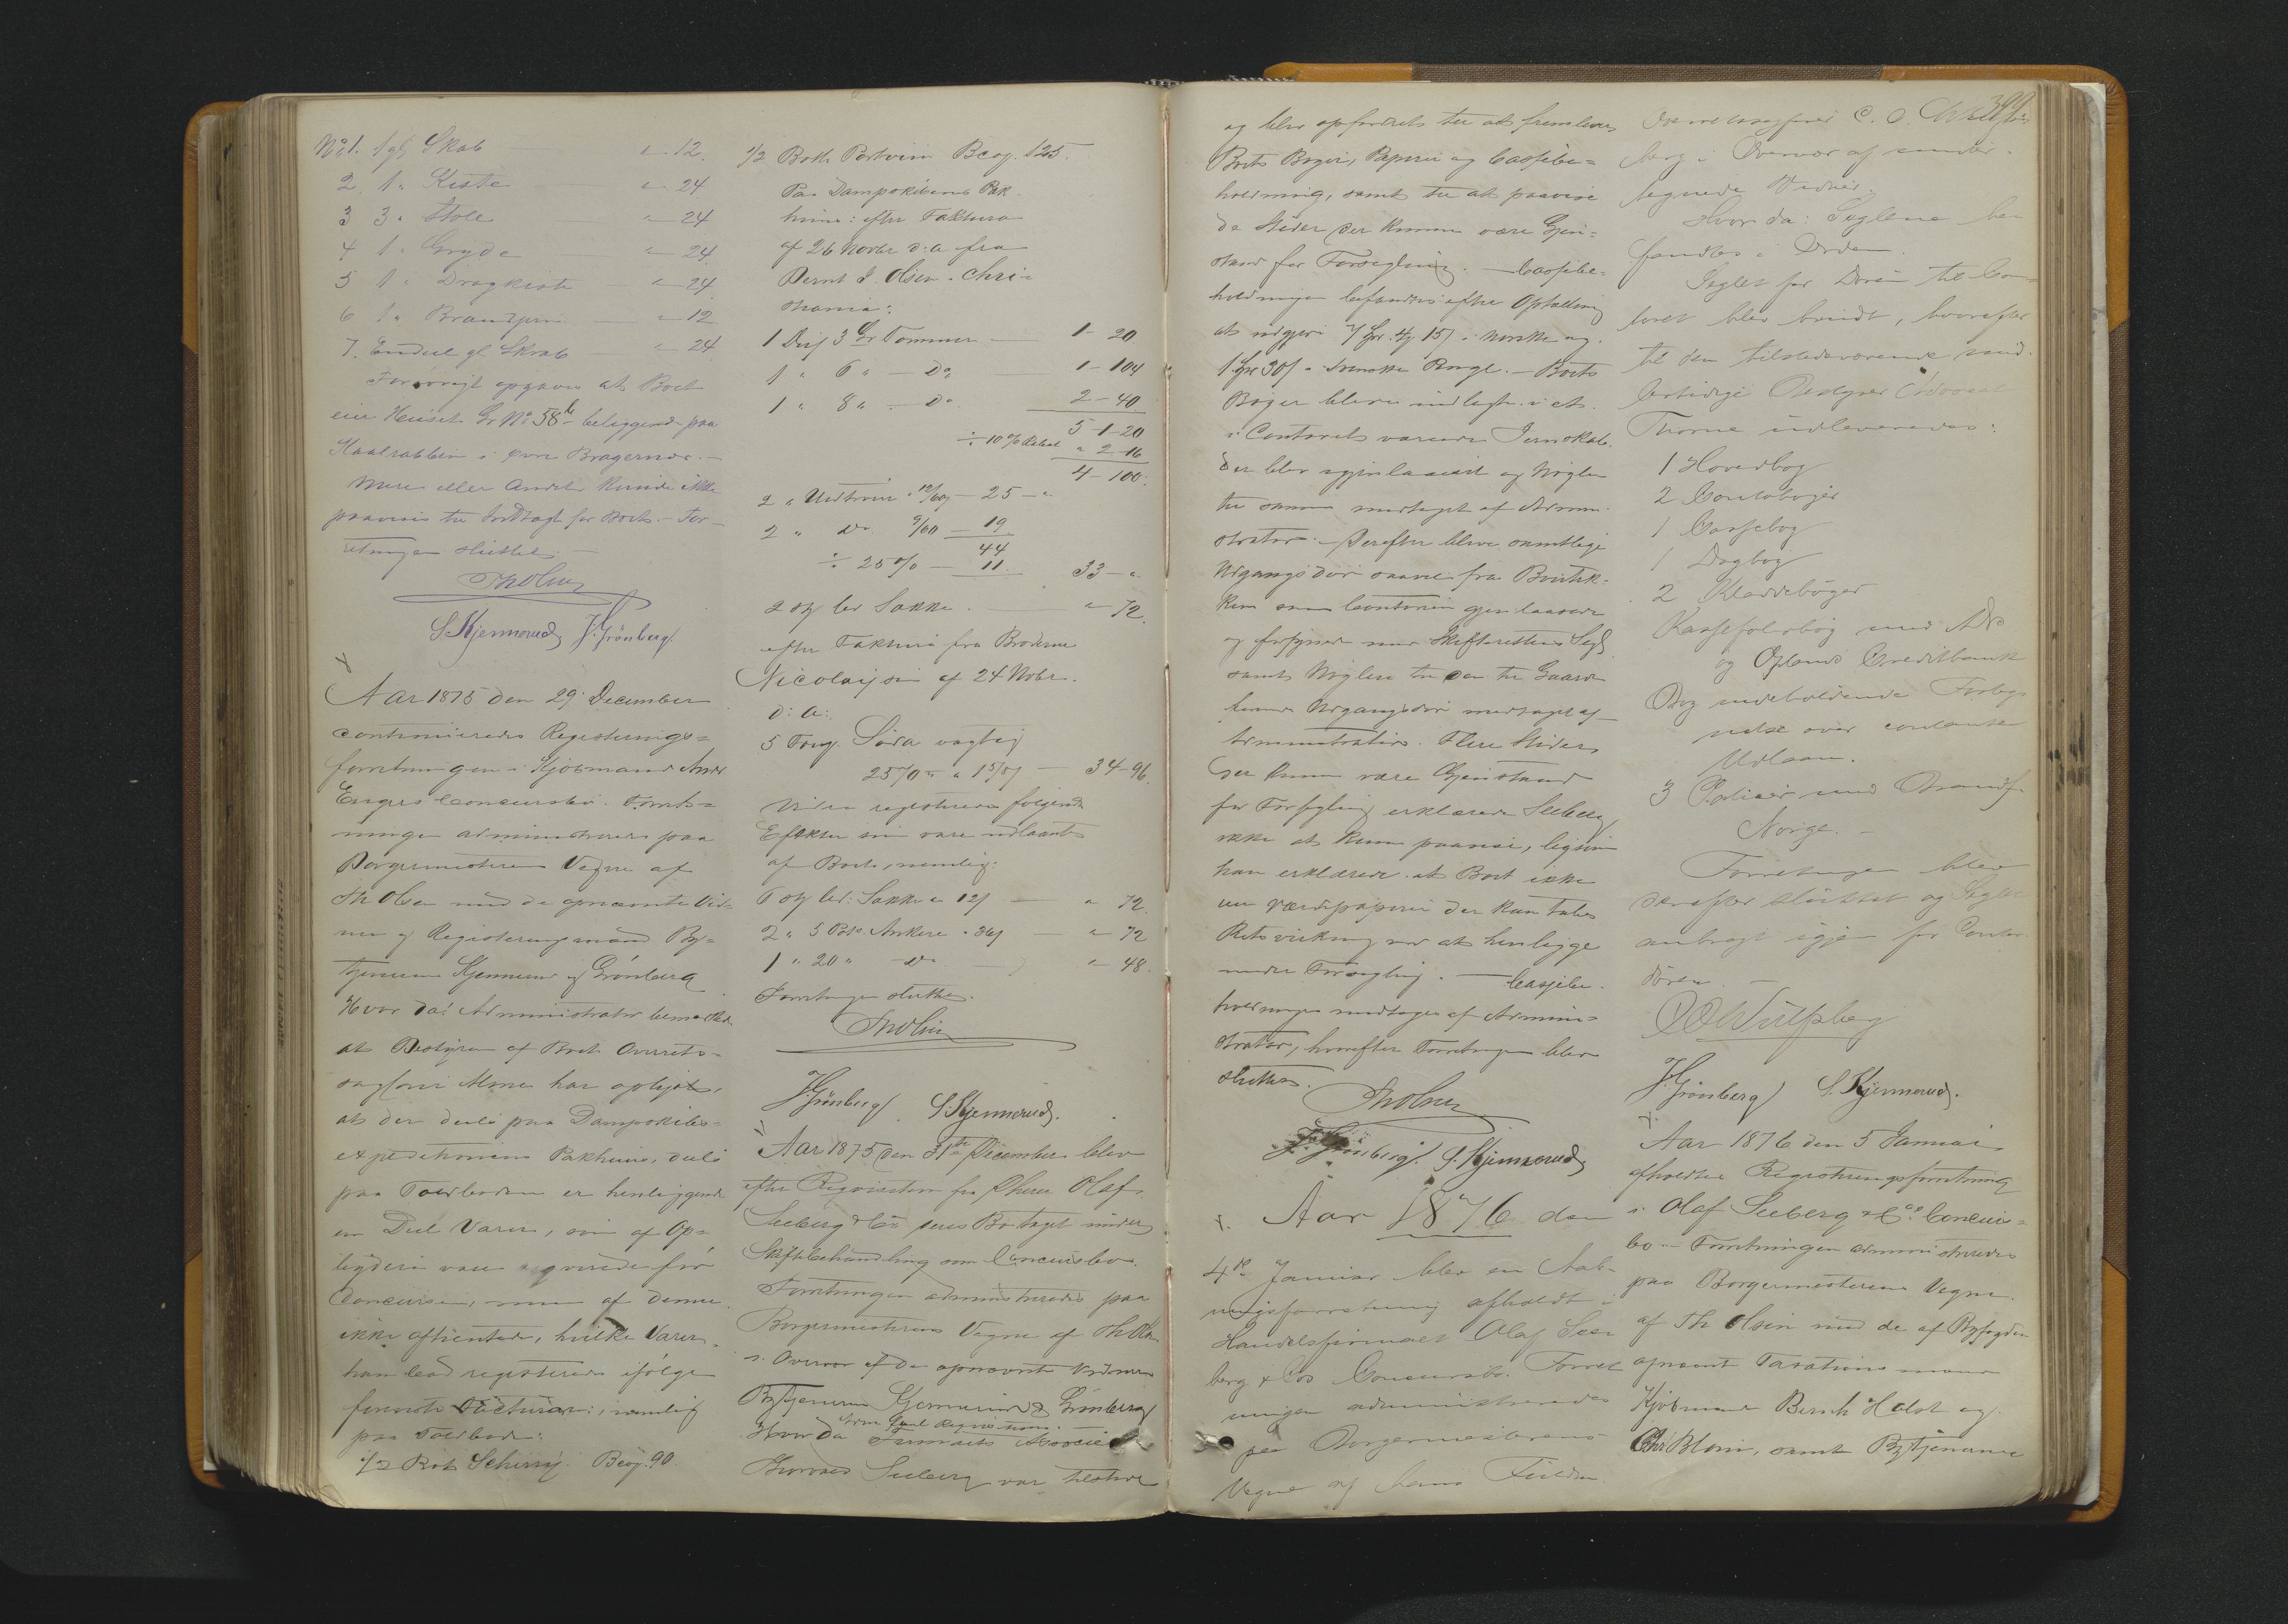 No 1. 1 gl. Skab " 12.
2. 1 " Kiste " 24
3 3 " Stole " 24
4 1 " Gryde " 24
5 1 " Dragkiste " 24
6 1 " Brandjern " 12
7. Endeel gl. Skrab " 24
Forøvrigt opgaves at Boet
eier Huset Gr No 58 b beliggende paa
i øvre Bragernæs. –
Mere eller Andet kunde ikke
paavises tilhørende Boet. – For-
retningen sluttet. –
Th Olsen
S. Kjennerud J. Grönberg
Aar 1875 den 29 December
continueredes Registerings=
forretningen i Kjøbmand
Engers Concursbo. Forret=
ningen administreredes paa
Borgermesterens Vegne af
Th Olsen med de opnævnte Vid-
ner og Registeringsmænd By=
tjenerne Kjennerud og Grönberg
Hvor da: Administrator bemærkede
at Bestyrer af Boet Overrets-
sagfører har oplyst,
at der deels paa Dampskibs=
expeditionens Pakhuus, deels
paa Toldboden er henliggende
en Deel Varer, som af Op=
byderen vare før
Concursen, men af denne
ikke afhentede, hvilke Varer
han bad registerede ifølge
Facturaer: nemlig
paa Toldboden:
1/2 Bot Scherry. Beg. 90.
1/2 Both Portvin Beg. 125.
Paa Dampskibenes Pak-
huus: efter Faktura
af 26 Novbr d: A fra
Bernt J. Olsen. Chri-
stiania:
1 Dus 3 Gr Tommer 1 - 20
1 " 6 " – Do 1 - 104
1 " 8 " – Do 2 - 40
5 - 1 - 20
÷ 10 % Rabat " 2 - 16
4 - 100.
2 " 12/60 – 25 – "
2 " Do 9/60 – 19
44
÷ 25 % – 11 33 – "
2 Stk Sække " 72.
efter Faktura fra Brødrene
Nicolaysen af 24 Novbr.
d: A:
5 Soda vægtig
– 34 - 96.
Videre registreredes følgende
Effekter som vare udlaant
af Boet, nemlig:
6 Stk Sække a 12 " 72.
2 " 5 Ankere " 36 " 72
1 " 20 " Do " 48.
Forretningen sluttet.
Th Olsen
J. Grönberg S. Kjennerud.
Aar 1875 den 31te December blev
efter Reqvisition fra Dherrer Olaf
Seeberg & Co deres Bo taget under
Skiftebehandling som Concursbo.
Forretningen administreredes paa
Borgermesterens Vegne af Th Olsen
i Overvær af de opnævnte Vidner
Bytjenerne Kjennerud & Grönberg
Hvor da Firmaets Associe
Seeberg var tilstede
og blev opfordret til at fremlevere
Boets Bøger, Papirer og Cassebe=
holdning, samt til at paavise
de Steder der kunne være Gjen=
stand for Forsegling. – Cassebe=
holdningen befandtes efter Optælling
at udgjøre 7 Spd. 4 15 i norske og
1 Spd 30 i svenske Penge. – Boets
Bøger bleve indlagte i et
i Contoret værende Jernskab.
der blev igjenlaaset og Nøglen
til samme modtaget af Admini-
strator. – Derefter bleve samtlige
Udgangsdøre saavel fra Boutik-
ken som Contoiret gjenlaasede
og forsynede med Skifterettens Segl
samt Nøglen til den til Gaarden
Udgangsdør modtaget af
Administrator. Flere Steder
der kunne være Gjenstand
for Forsegling erklærede Seeberg
ikke at kunne paavise, ligesom
han erklærede at Boet ikke
eier Værdipapirer der kan tabe
Retsvirkning ved at henligge
under Forsegling. – Cassebe-
holdningen modtoges af Admini=
strator, hvorefter Forretningen blev
sluttet.
Th Olsen
J. Grönberg. S. Kjennerud
Aar 1876 den
4de Januar blev en Aab-
ningsforretning afholdt i
Handelsfirmaet Olaf See-
berg & Cos Concursbo. Forret-
ningen administreredes
paa Borgermesterens
Vegne af hans
399
Overretssagfører C. O. Wulfs-
berg i Overvær af under-
tegnede Vidner.
Hvor da: Seglene be-
fandtes i Orden.
Seglet for Døren til Con-
toret blev brudt, hvorefter
til den tilstedeværende mid-
lertidige Bestyrer Advocat
Thorne udleveredes:
1 Hovedbog
2 Contobøger
1 Cassebog
1 Dagbog
2 Kladdebøger
Kassefolebog med
og Oplands Creditbank
Bog indeholdende Forteg-
nelse over contante
Udlaan.
3 Policer med Brandf.
Norge. –
Forretningen blev
derefter sluttet og Seglet
anbragt igjen for Contor-
døren. –
C O Wulfsberg
J. Grönberg S. Kjennerud.
Aar 1876 den 5 Januar
afholdtes Registeringsforretning
i Olaf Seeberg & Co Concurs=
bo. – Forretningen administreredes
paa Borgermesterens Vegne
af Th Olsen med de af Byfogden
opnævnt Taxationsmænd
Kjøbmand Bernh Holst og
Chr Blom, samt Bytjenerne